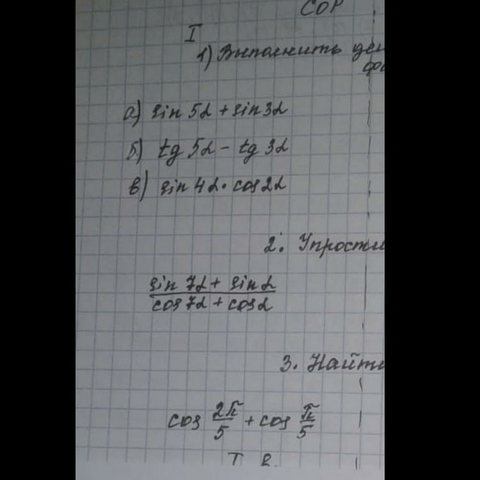 СОР
I
1) Выполнить
а) sin 5α + sin 3α
б) tg 5α - tg 3α
в) sin 4α · cos 2α
2. Упрости
sin 7α + sin α
cos 7α + cos α
3. Найти
cos 2π/5 + cos π/5